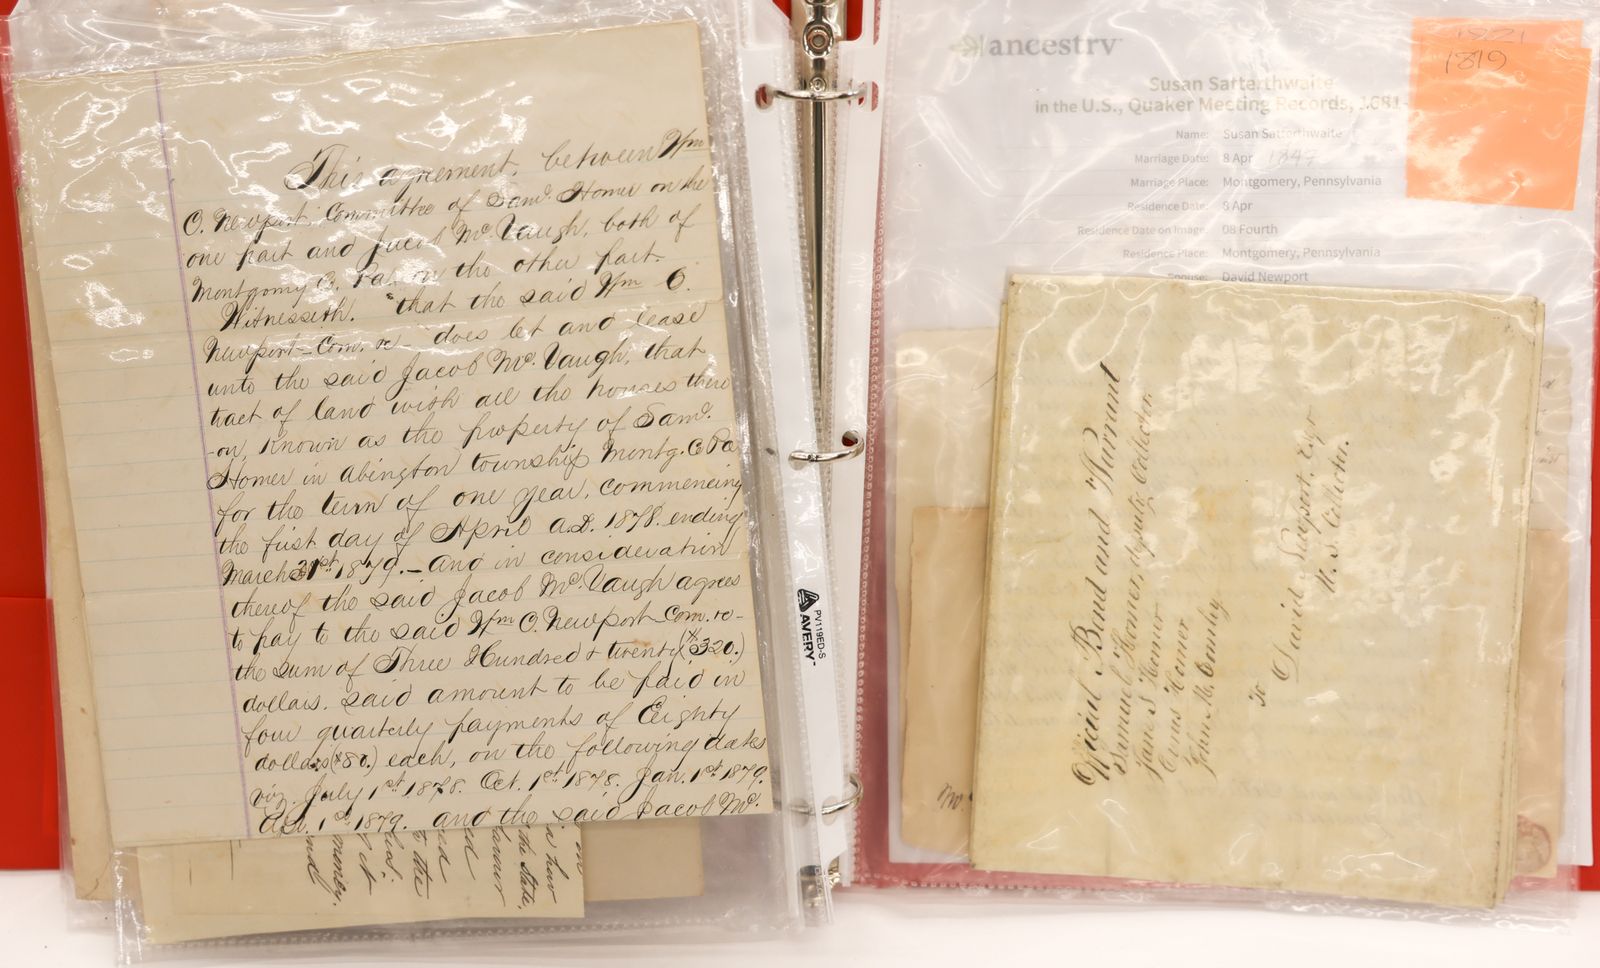 This agreement, between Wm
O. Newport, Committee of Saml. Homer on the
one part and Jacob Mc. Vaugh, both of
Montgomy Co. Pa. on the other part.
Witnesseth. "that the said Wm O.
Newport - Com. &c - does let and lease
unto the said Jacob Mc. Vaugh, that
tract of land with all the houses there
-on, known as the property of Saml.
Homer in Abington township Montg. Co Pa
for the term of one year, commencing
the first day of April A.D. 1878. ending
March 31st 1879. - and in consideration
thereof the said Jacob Mc. Vaugh agrees
to pay to the said Wm O. Newport Com. &c -
the sum of Three Hundred & twenty ($320.)
dollars. said amount to be paid in
four quarterly payments of Eighty
dollars ($80.) each, on the following dates
viz. July 1st 1878. Oct. 1st 1878. Jan. 1st 1879.
Apr. 1st 1879. and the said Jacob Mc.
the State.
to the
money.
AVERY
PV119ED-S
ancestry
1821
1819
Susan Satterthwaite
in the U.S., Quaker Meeting Records, 1681-
Name: Susan Satterthwaite
Marriage Date: 8 Apr 1847
Marriage Place: Montgomery, Pennsylvania
Residence Date: 8 Apr
Residence Date on Image: 08 Fourth
Residence Place: Montgomery, Pennsylvania
Spouse: David Newport
Official Bond and Warrant
Samuel Homer, deputy Collector
Jane S Homer
John M. Comly
to
David Newport, Esqr
U. S. Collector.